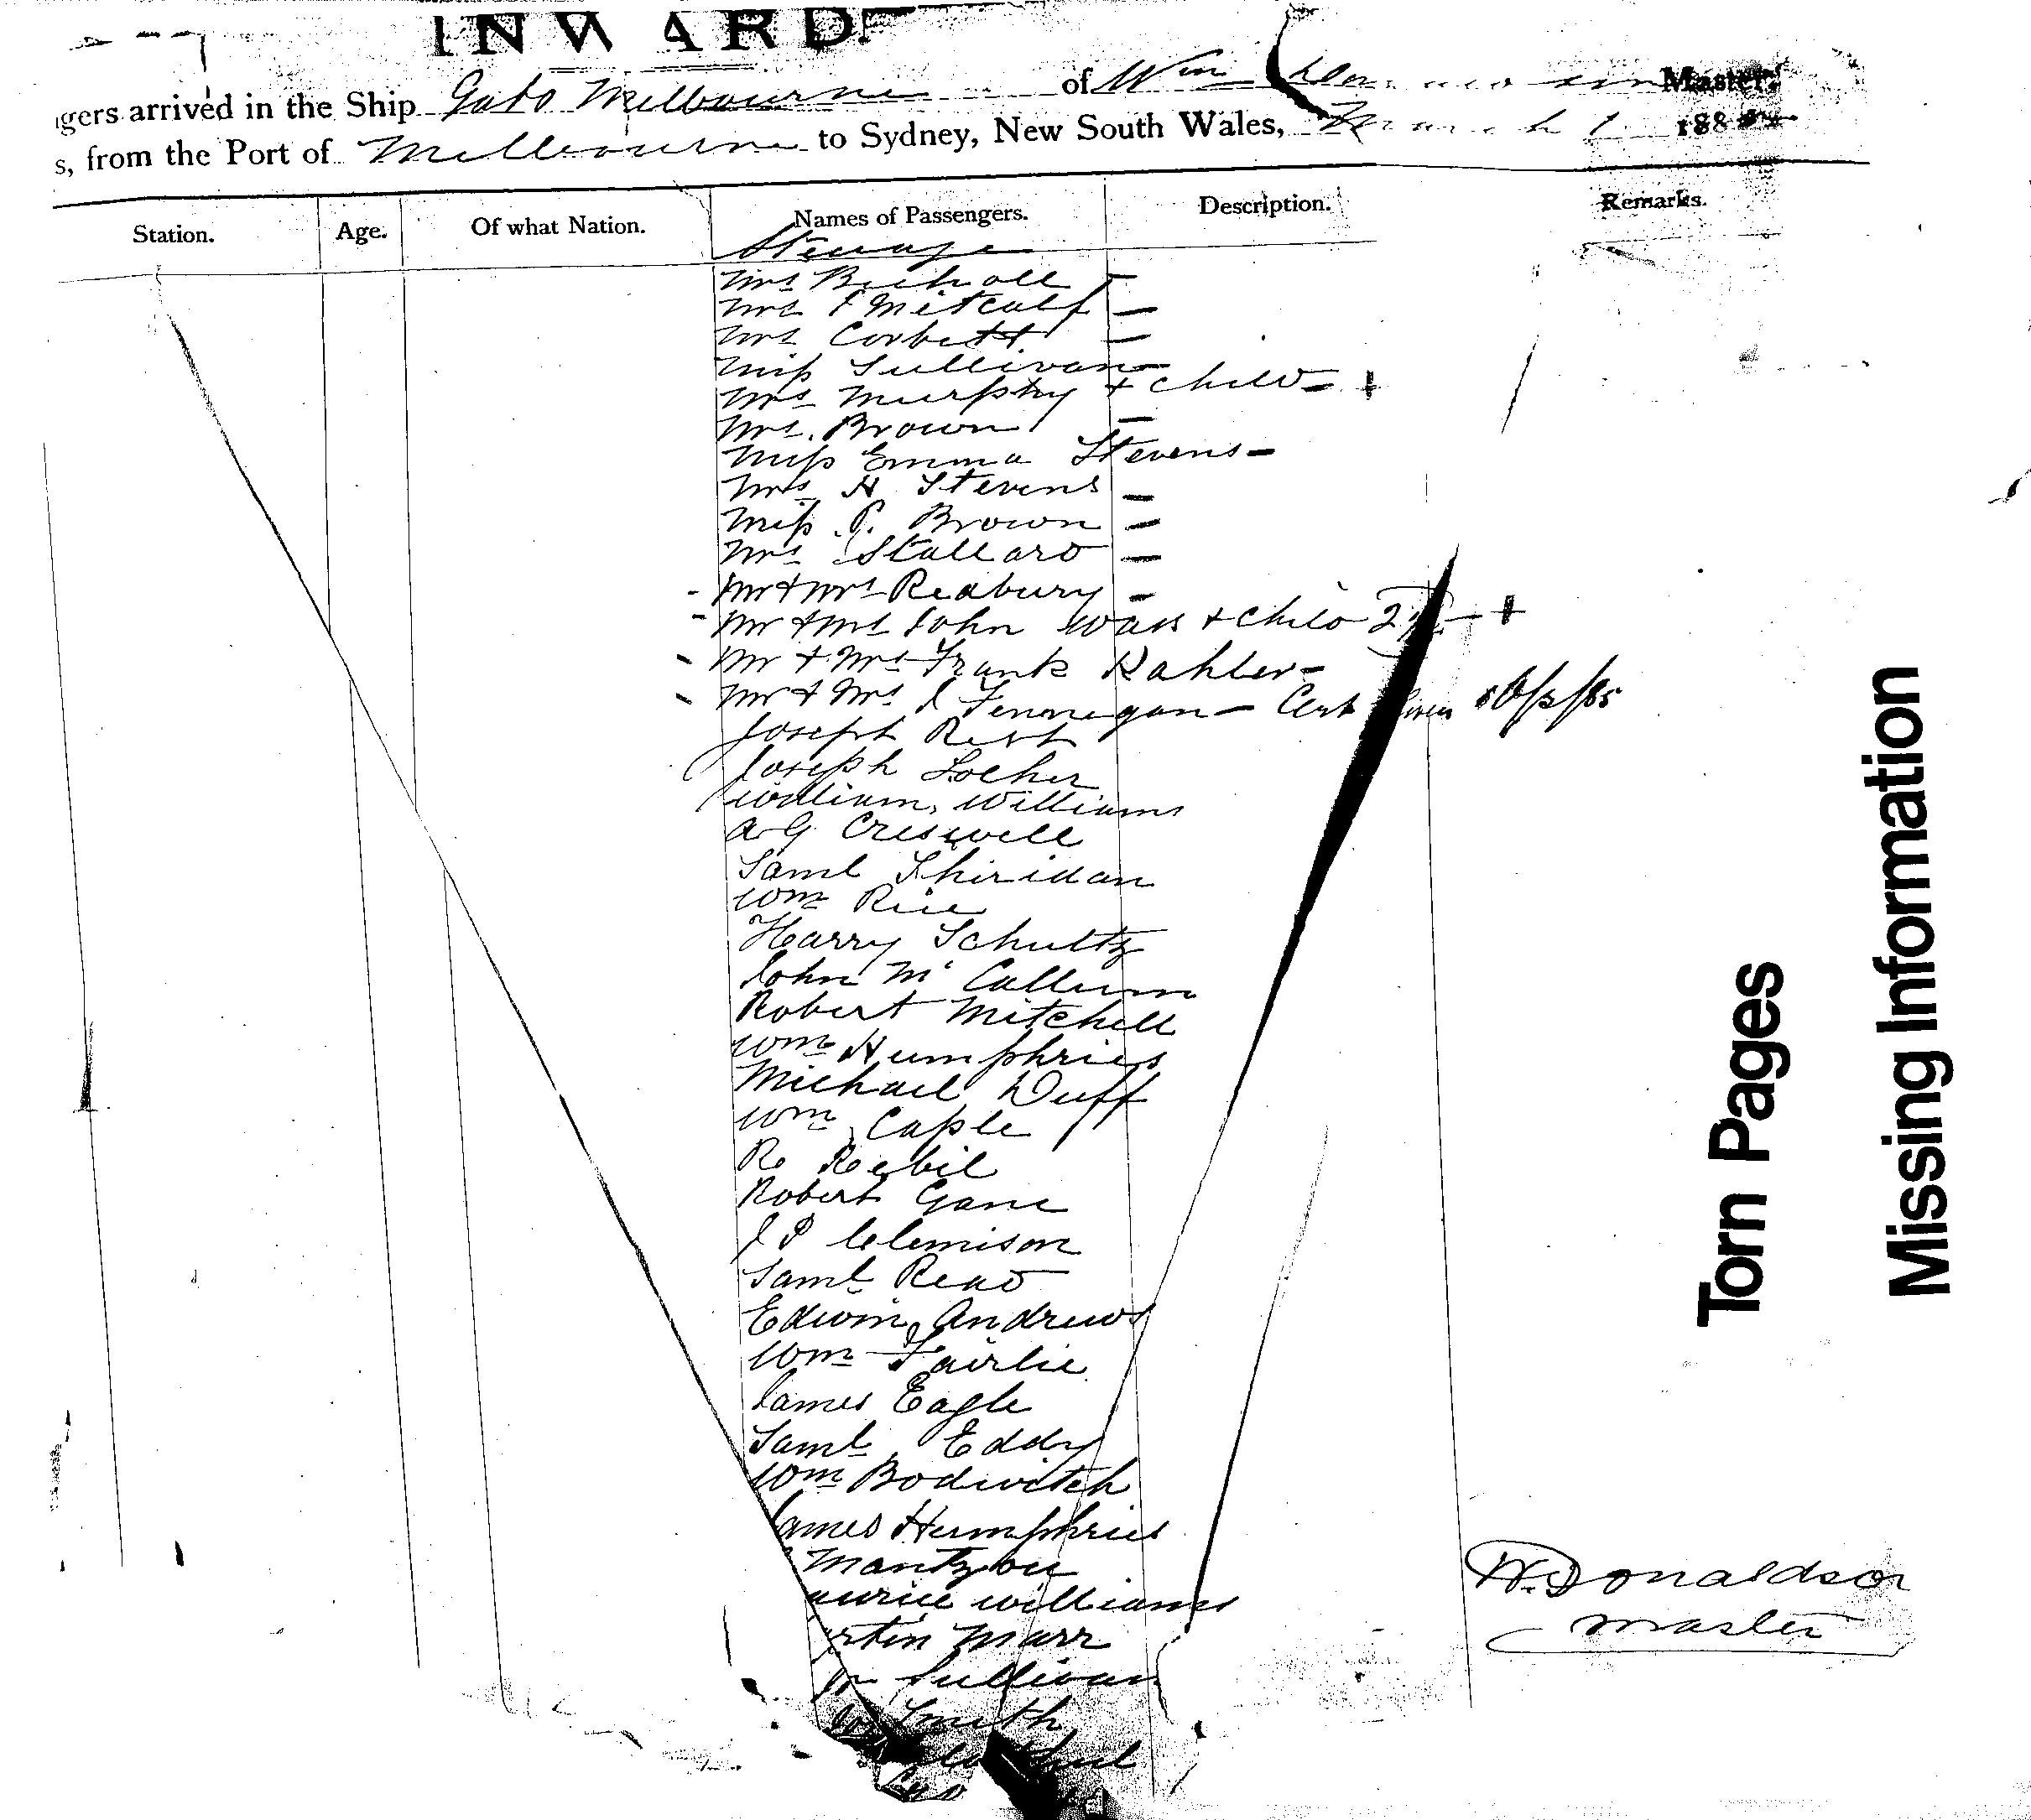 INWARD.
gers arrived in the Ship Melbourne of Wm Master,
s, from the Port of Melbourne to Sydney, New South Wales, March 1 188
Station. Age. Of what Nation. Names of Passengers. Description. Remarks.
Steerage
Mrs
Mrs Metcalf —
Mrs Corbett —
Miss Sullivan —
Mrs Murphy + child — +
Mrs. Brown —
Miss Emma Stevens —
Mrs H Stevens —
Miss P. Brown —
Mrs Stallard —
- Mr + Mrs Readbury —
- Mr + Mrs John + Child — +
- Mr + Mrs Frank Kahler —
- Mr + Mrs J Fennegan — Cert
Joseph
Joseph Locher
William Williams
A G Creswell
Saml Shiridan
Wm Rice
Harry Schultz
John Mc Callum
Robert Mitchell
Wm Humphries
Michael Duff
Wm Caple
R Reebil
Robert Gane
J P Clemison
Saml Read
Edwin Andrews
Wm Fairlie
James Eagle
Saml Eddy
Wm Bodwitch
James Humphries
aurice Williams
rtin Marr
Sullivan
Smith
W. Donaldson
Master
Torn Pages
Missing Information